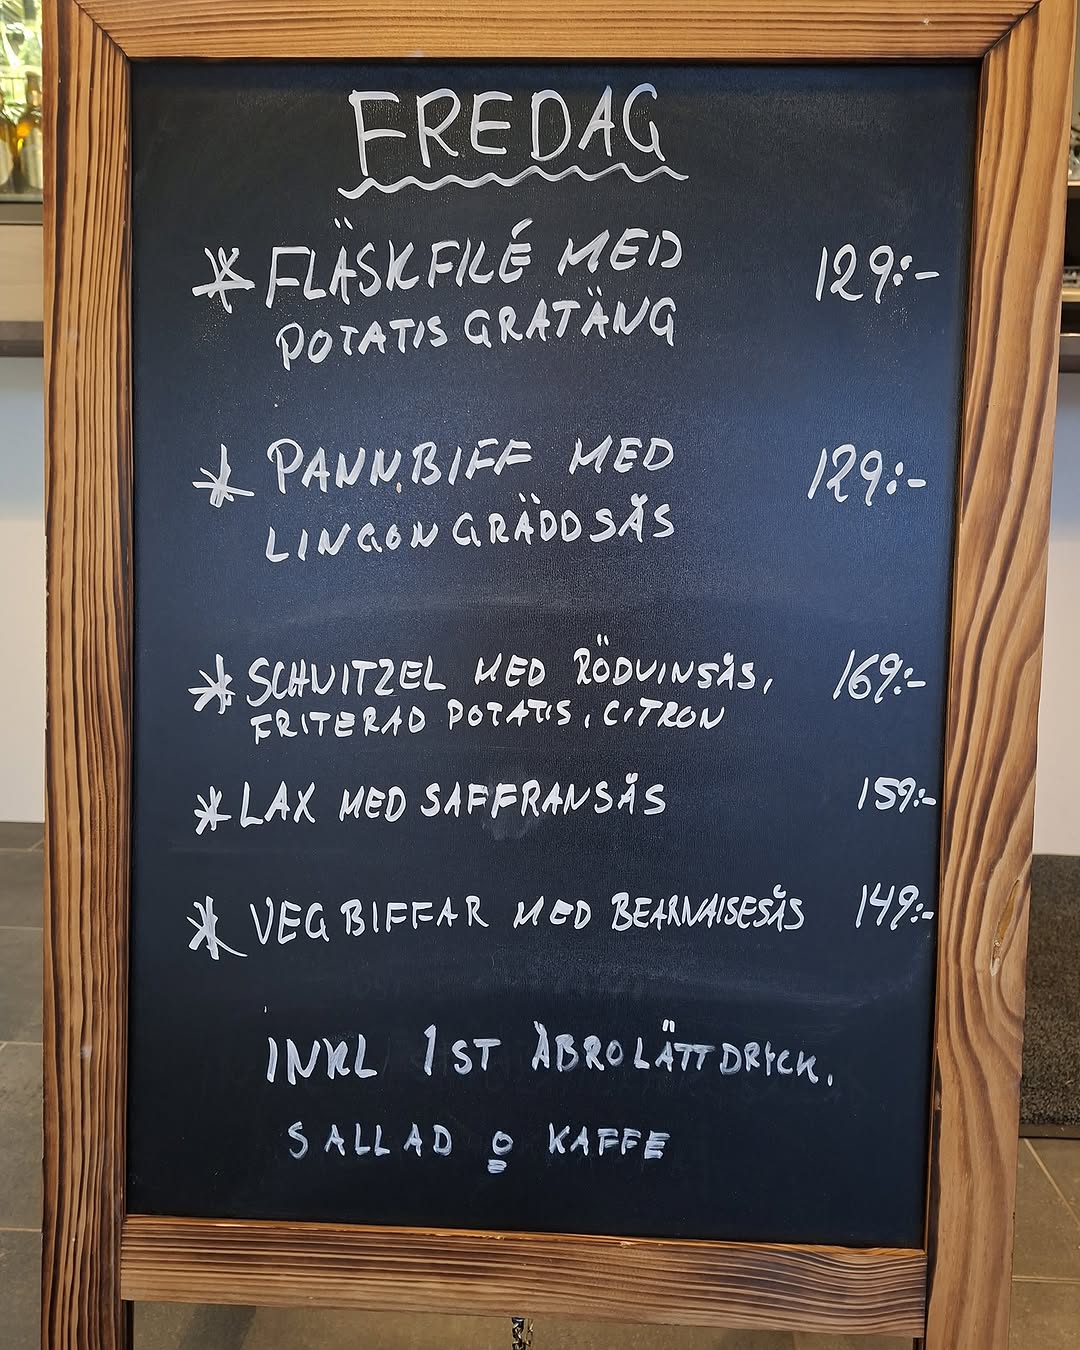 FREDAG
* FLÄSKFILÉ MED 129:-
POTATIS GRATÄNG
* PANNBIFF MED 129:-
LINGON GRÄDDSÅS
* SCHNITZEL MED RÖDVINSÅS, 169:-
FRITERAD POTATIS, CITRON
* LAX MED SAFFRANSÅS 159:-
* VEG BIFFAR MED BEARNAISESÅS 149:-
INKL 1 ST ÅBRO LÄTTDRICK,
SALLAD o KAFFE